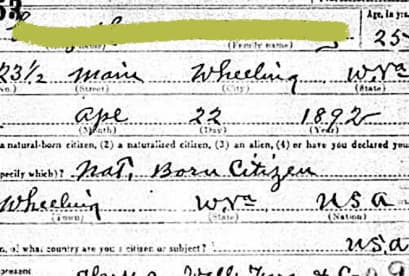 53
(Family name) Age, in yrs
25
23½ Main Wheeling W.Va
(Street) (City) (State)
Apr 22 1892
(Month) (Day) (Year)
a natural-born citizen, (2) a naturalized citizen, (3) an alien, (4) or have you declared your
specify which)? Nat. Born Citizen
Wheeling W.Va U S A
(Town) (State) (Nation)
n, of what country are you a citizen or subject? U.S.A
present